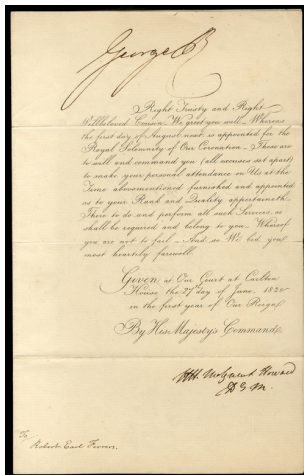 George R
Right Trusty and Right
Wellbeloved Cousin We greet you well – Whereas
the first day of August next, is appointed for the
Royal Solemnity of Our Coronation – These are
to will and command you (all excuses set apart)
to make your personal attendance on Us at the
Time abovementioned furnished and appointed
as to your Rank and Quality appertaineth.
There to do and perform all such Services, as
shall be required and belong to you – Whereof
you are not to fail – And so We bid you
most heartily farewell.
Given at Our Court at Carlton
House the 27 day of June 1820
in the first year of Our Reign
By His Majesty's Command.
Howard
D E M.
To
Robert Earl Ferrers.